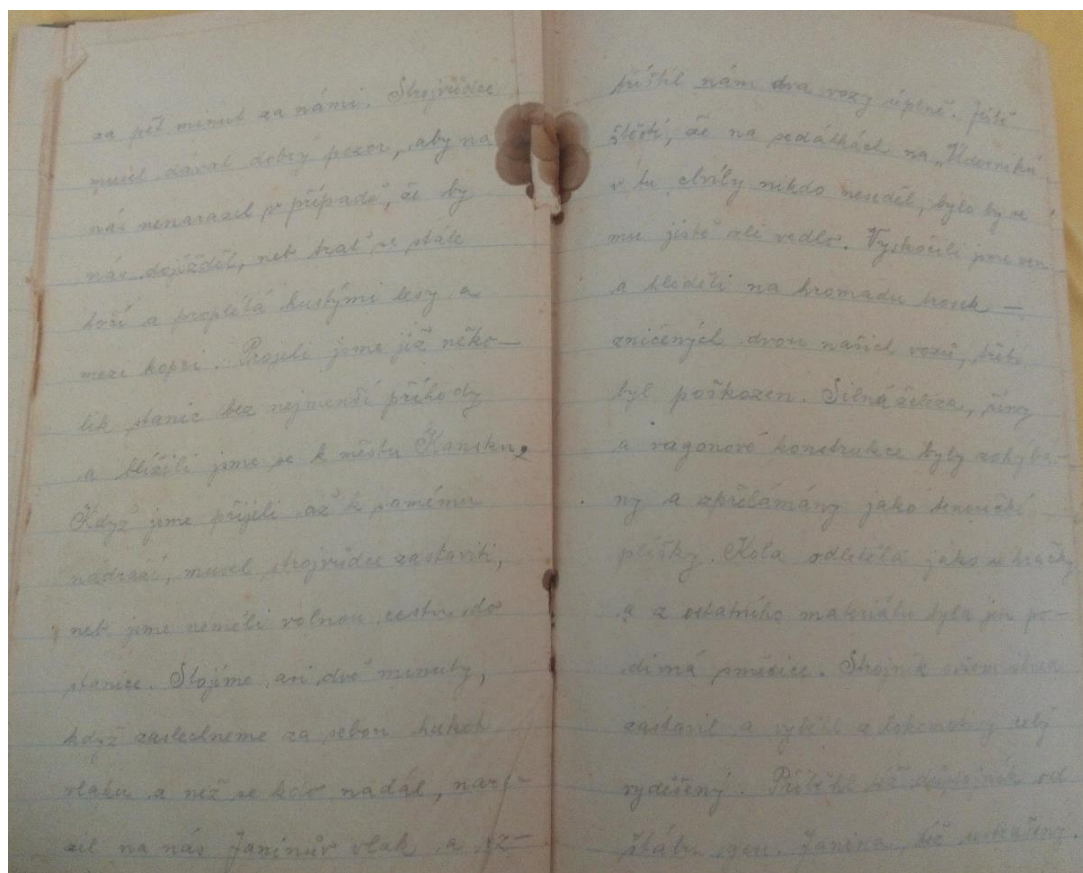 za pět minut za námi. Strojvůdce
musel dávat dobrý pozor, aby na
nás nenarazil v případě, že by
nás dojížděl, neb trať se stále
točí a proplétá hustými lesy a
mezi kopci. Projeli jsme již něko-
lik stanic bez nejmenší příhody
a blížili jsme se k městu Kansku.
Když jsme přijeli až k samému
nádraží, musel strojvůdce zastaviti,
neb jsme neměli volnou cestu do
stanice. Stojíme asi dvě minuty,
když zaslechneme za sebou hukot
vlaku a než se kdo nadál, nara-
zil na nás Janinův vlak a
tříštil nám dva vozy úplně. Ještě
štěstí, že na sedátkách na „Úderníku"
v tu chvíly nikdo neseděl, bylo by se
mu jistě zle vedlo. Vyskočili jsme ven
a hleděli na hromadu trosek —
zničených dvou našich vozů, třetí
byl poškozen. Silná železa,
a vagonové konstrukce byly zohýba-
ny a zpřelámány jako tenoučké
plíšky. Kola odletěla jako u hračky
a z ostatního materiálu byla jen po-
divná směsice. Strojník ovšem
zastavil a vyběhl z lokomotivy celý
vyděšený. Přiběhl též důstojník od
štábu gen. Janina, též ustrašený.